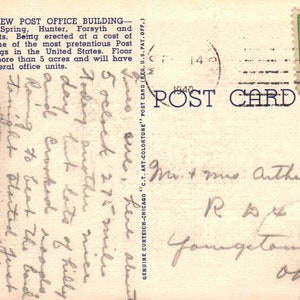 EW POST OFFICE BUILDING—
Spring, Hunter, Forsyth and
ts. Being erected at a cost of
ne of the most pretentious Post
gs in the United States. Floor
more than 5 acres and will have
eral office units.
14
1940
POST CARD
GENUINE CURTEICH-CHICAGO "C.T. ART-COLORTONE" POST CARD (REG. U.S. PAT. OFF.)
here about
5 o'clock 275 miles
today another nice
day but lots of hilly
and crooked roads
to beat the
Mr. & Mrs Arthu
R D
Youngstow